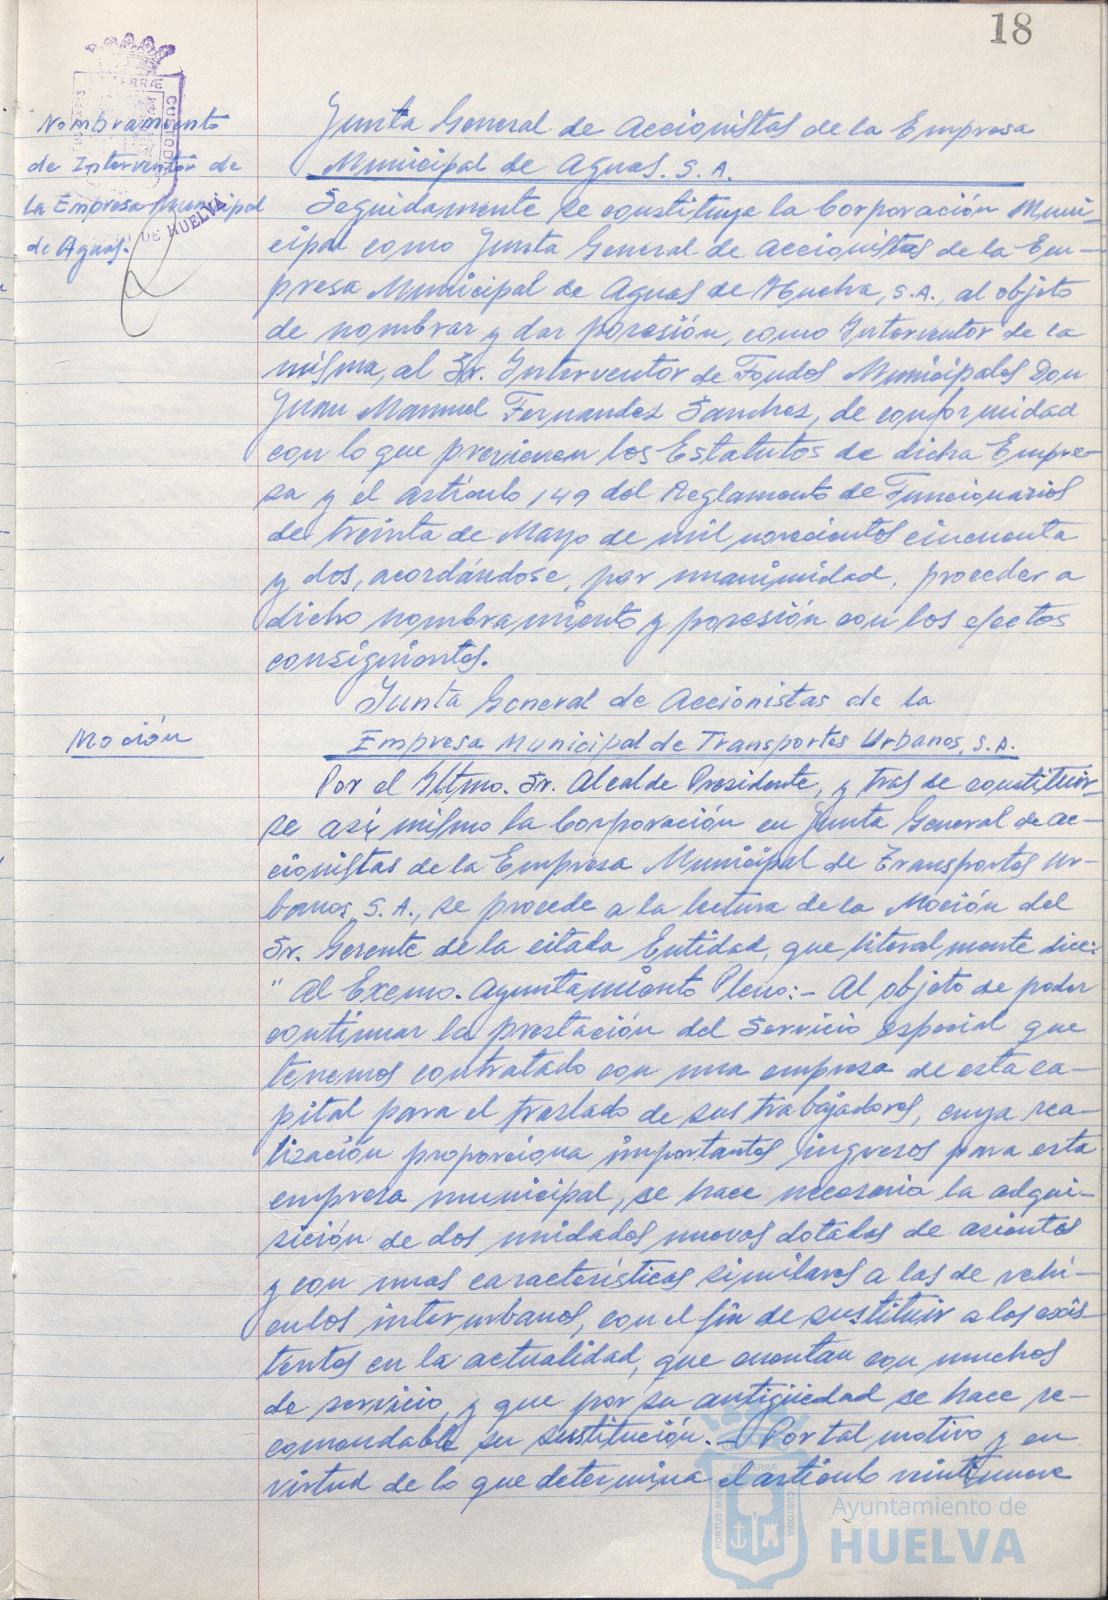 18
Nombramiento
de Interventor de
la Empresa Municipal
de Aguas.
Junta General de Accionistas de la Empresa
Municipal de Aguas. S. A.
Seguidamente se constituye la Corporación Muni-
cipal como Junta General de accionistas de la Em-
presa Municipal de Aguas de Huelva, S.A., al objeto
de nombrar y dar posesión, como Interventor de la
misma, al Sr. Interventor de Fondos Municipales Don
Juan Manuel Fernandez Sanchez, de conformidad
con lo que previenen los Estatutos de dicha Empre-
sa y el artículo 149 del Reglamento de Funcionarios
de treinta de Mayo de mil novecientos cincuenta
y dos, acordándose, por unanimidad, proceder a
dicho nombramiento y posesión con los efectos
consiguientes.
Junta General de Accionistas de la
Moción
Empresa Municipal de Transportes Urbanos, S.A.
Por el Iltmo. Sr. Alcalde Presidente, y tras de constituir-
se asi mismo la Corporación en Junta General de ac-
cionistas de la Empresa Municipal de Transportes Ur-
banos, S. A., se procede a la lectura de la Moción del
Sr. Gerente de la citada Entidad, que literalmente dice:
" Al Excmo. Ayuntamiento Pleno:- Al objeto de poder
continuar la prestación del Servicio especial que
tenemos contratado con una empresa de esta ca-
pital para el traslado de sus trabajadores, cuya rea-
lización proporciona importantes ingresos para esta
empresa municipal, se hace necesaria la adqui-
sición de dos unidades nuevas dotadas de asientos
y con unas características similares a las de vehí-
culos interurbanos, con el fin de sustituir a los exis-
tentes en la actualidad, que cuentan con muchos
de servicio, y que por su antigüedad se hace re-
comendable su sustitución. - Por tal motivo y en
virtud de lo que determina el artículo veintinueve
PORTUS MARIS
ET TERRÆ
CUSTODIA
Ayuntamiento de
HUELVA